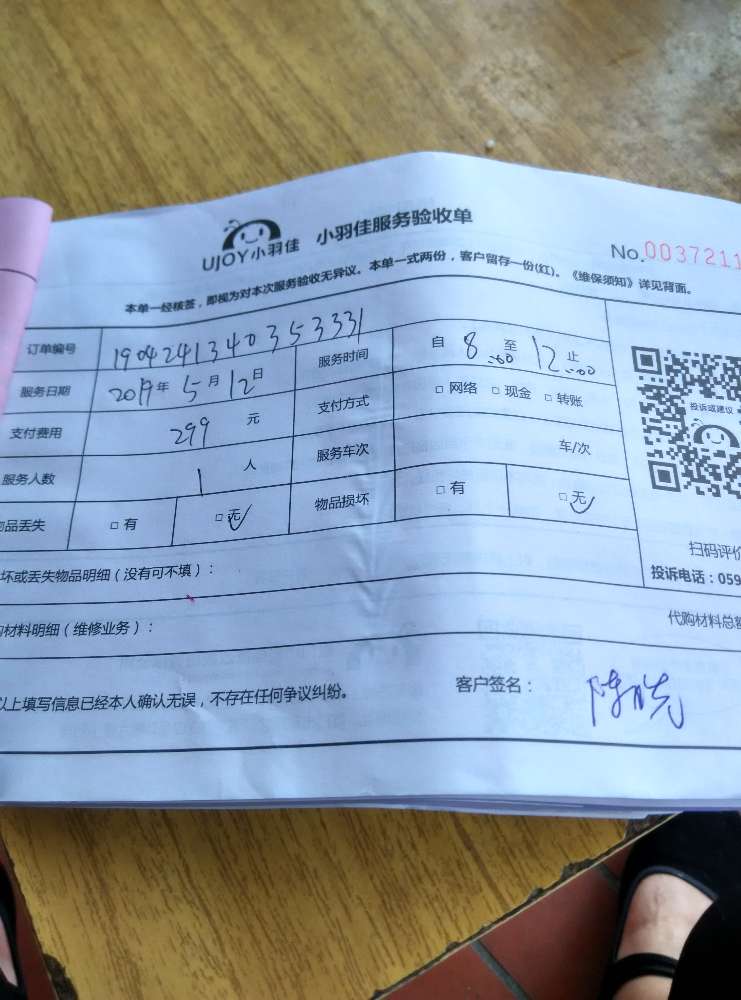 UJOY小羽佳 小羽佳服务验收单
No.0037211
本单一经核签，即视为对本次服务验收无异议。本单一式两份，客户留存一份(红)。《维保须知》详见背面。
订单编号 1904241340353331 服务时间 自 8:00 至 12:00 止
服务日期 2019年 5月 12日 支付方式 □ 网络 □ 现金 □ 转账
支付费用 299 元 服务车次 车/次
服务人数 1 人 物品损坏 □ 有 □ 无
品丢失 □ 有 □ 无
投诉或建议
扫码评价
投诉电话：059
坏或丢失物品明细（没有可不填）：
购材料明细（维修业务）： 代购材料总额
以上填写信息已经本人确认无误，不存在任何争议纠纷。 客户签名：